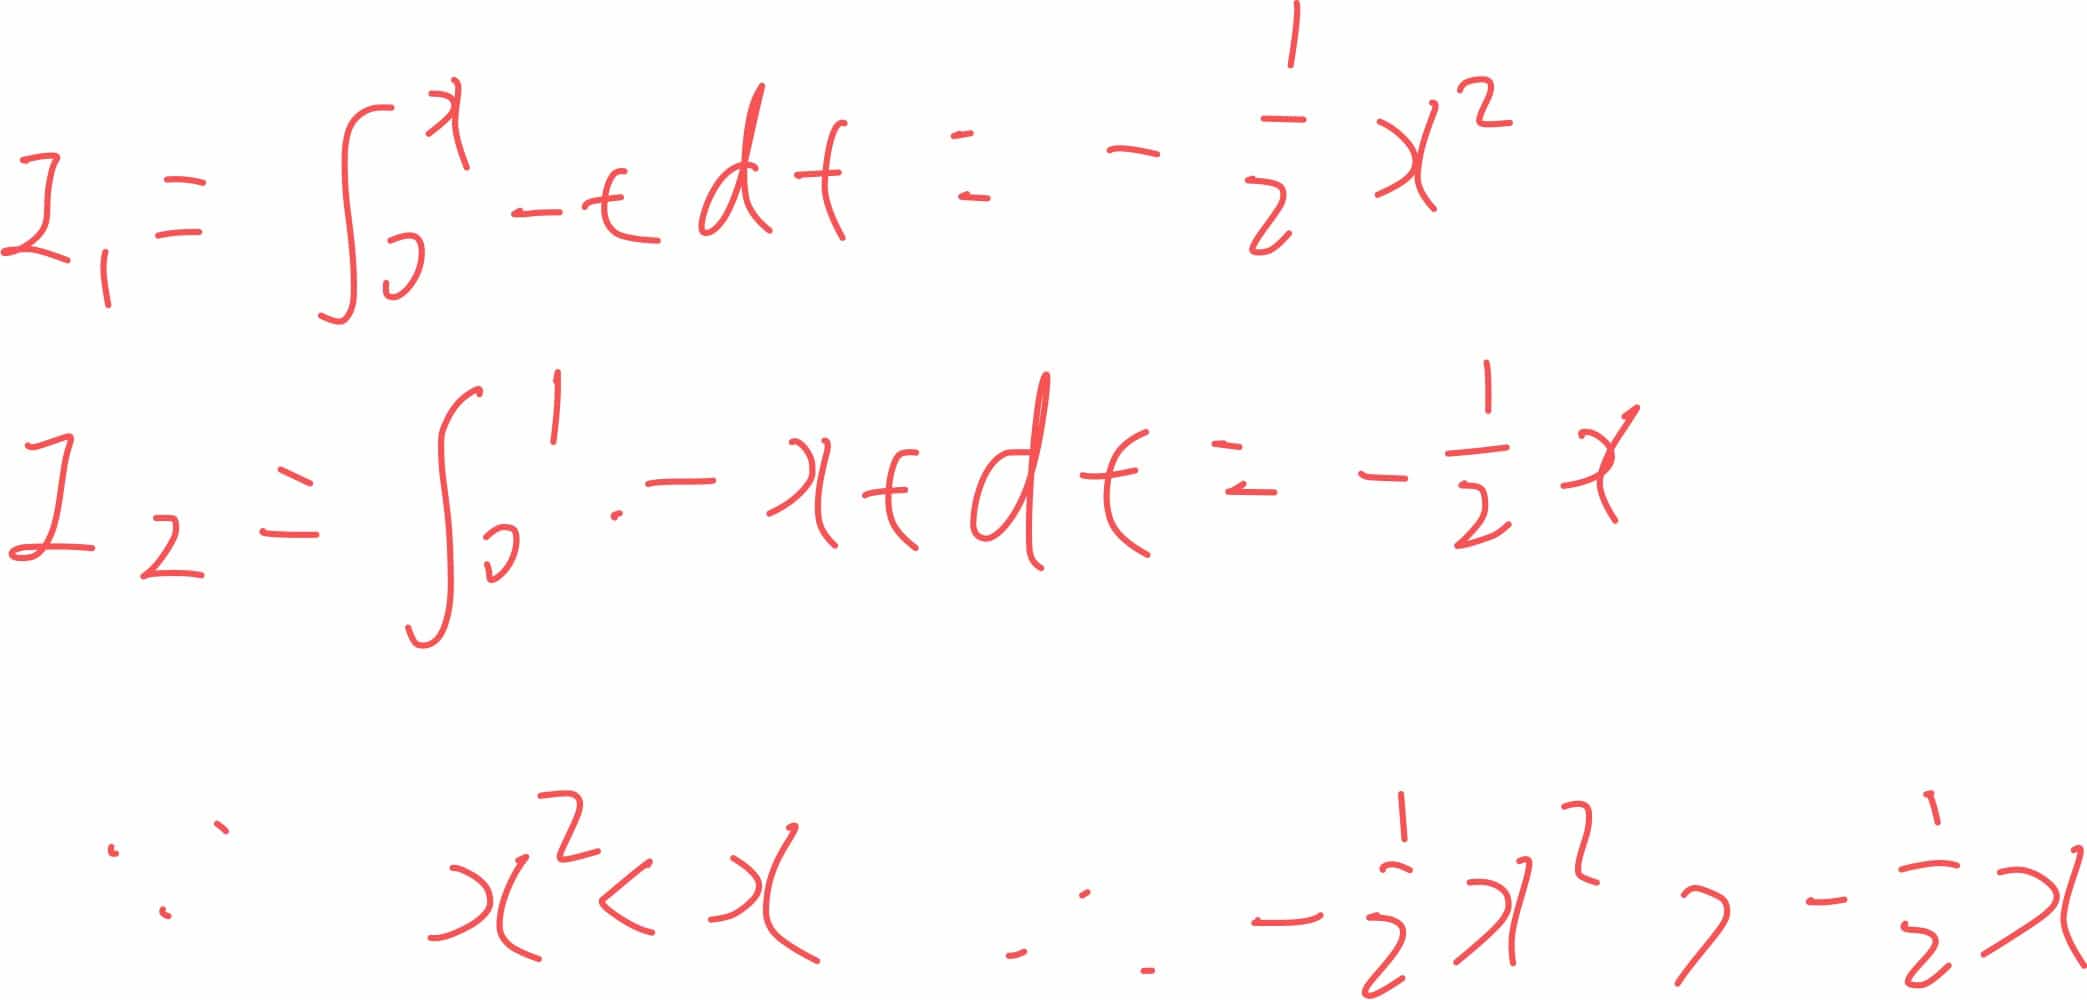 I₁ = ∫₀ˣ -t dt = -1/2 x²
I₂ = ∫₀¹ -xt dt = -1/2 x
∵ x² < x ∴ -1/2 x² > -1/2 x